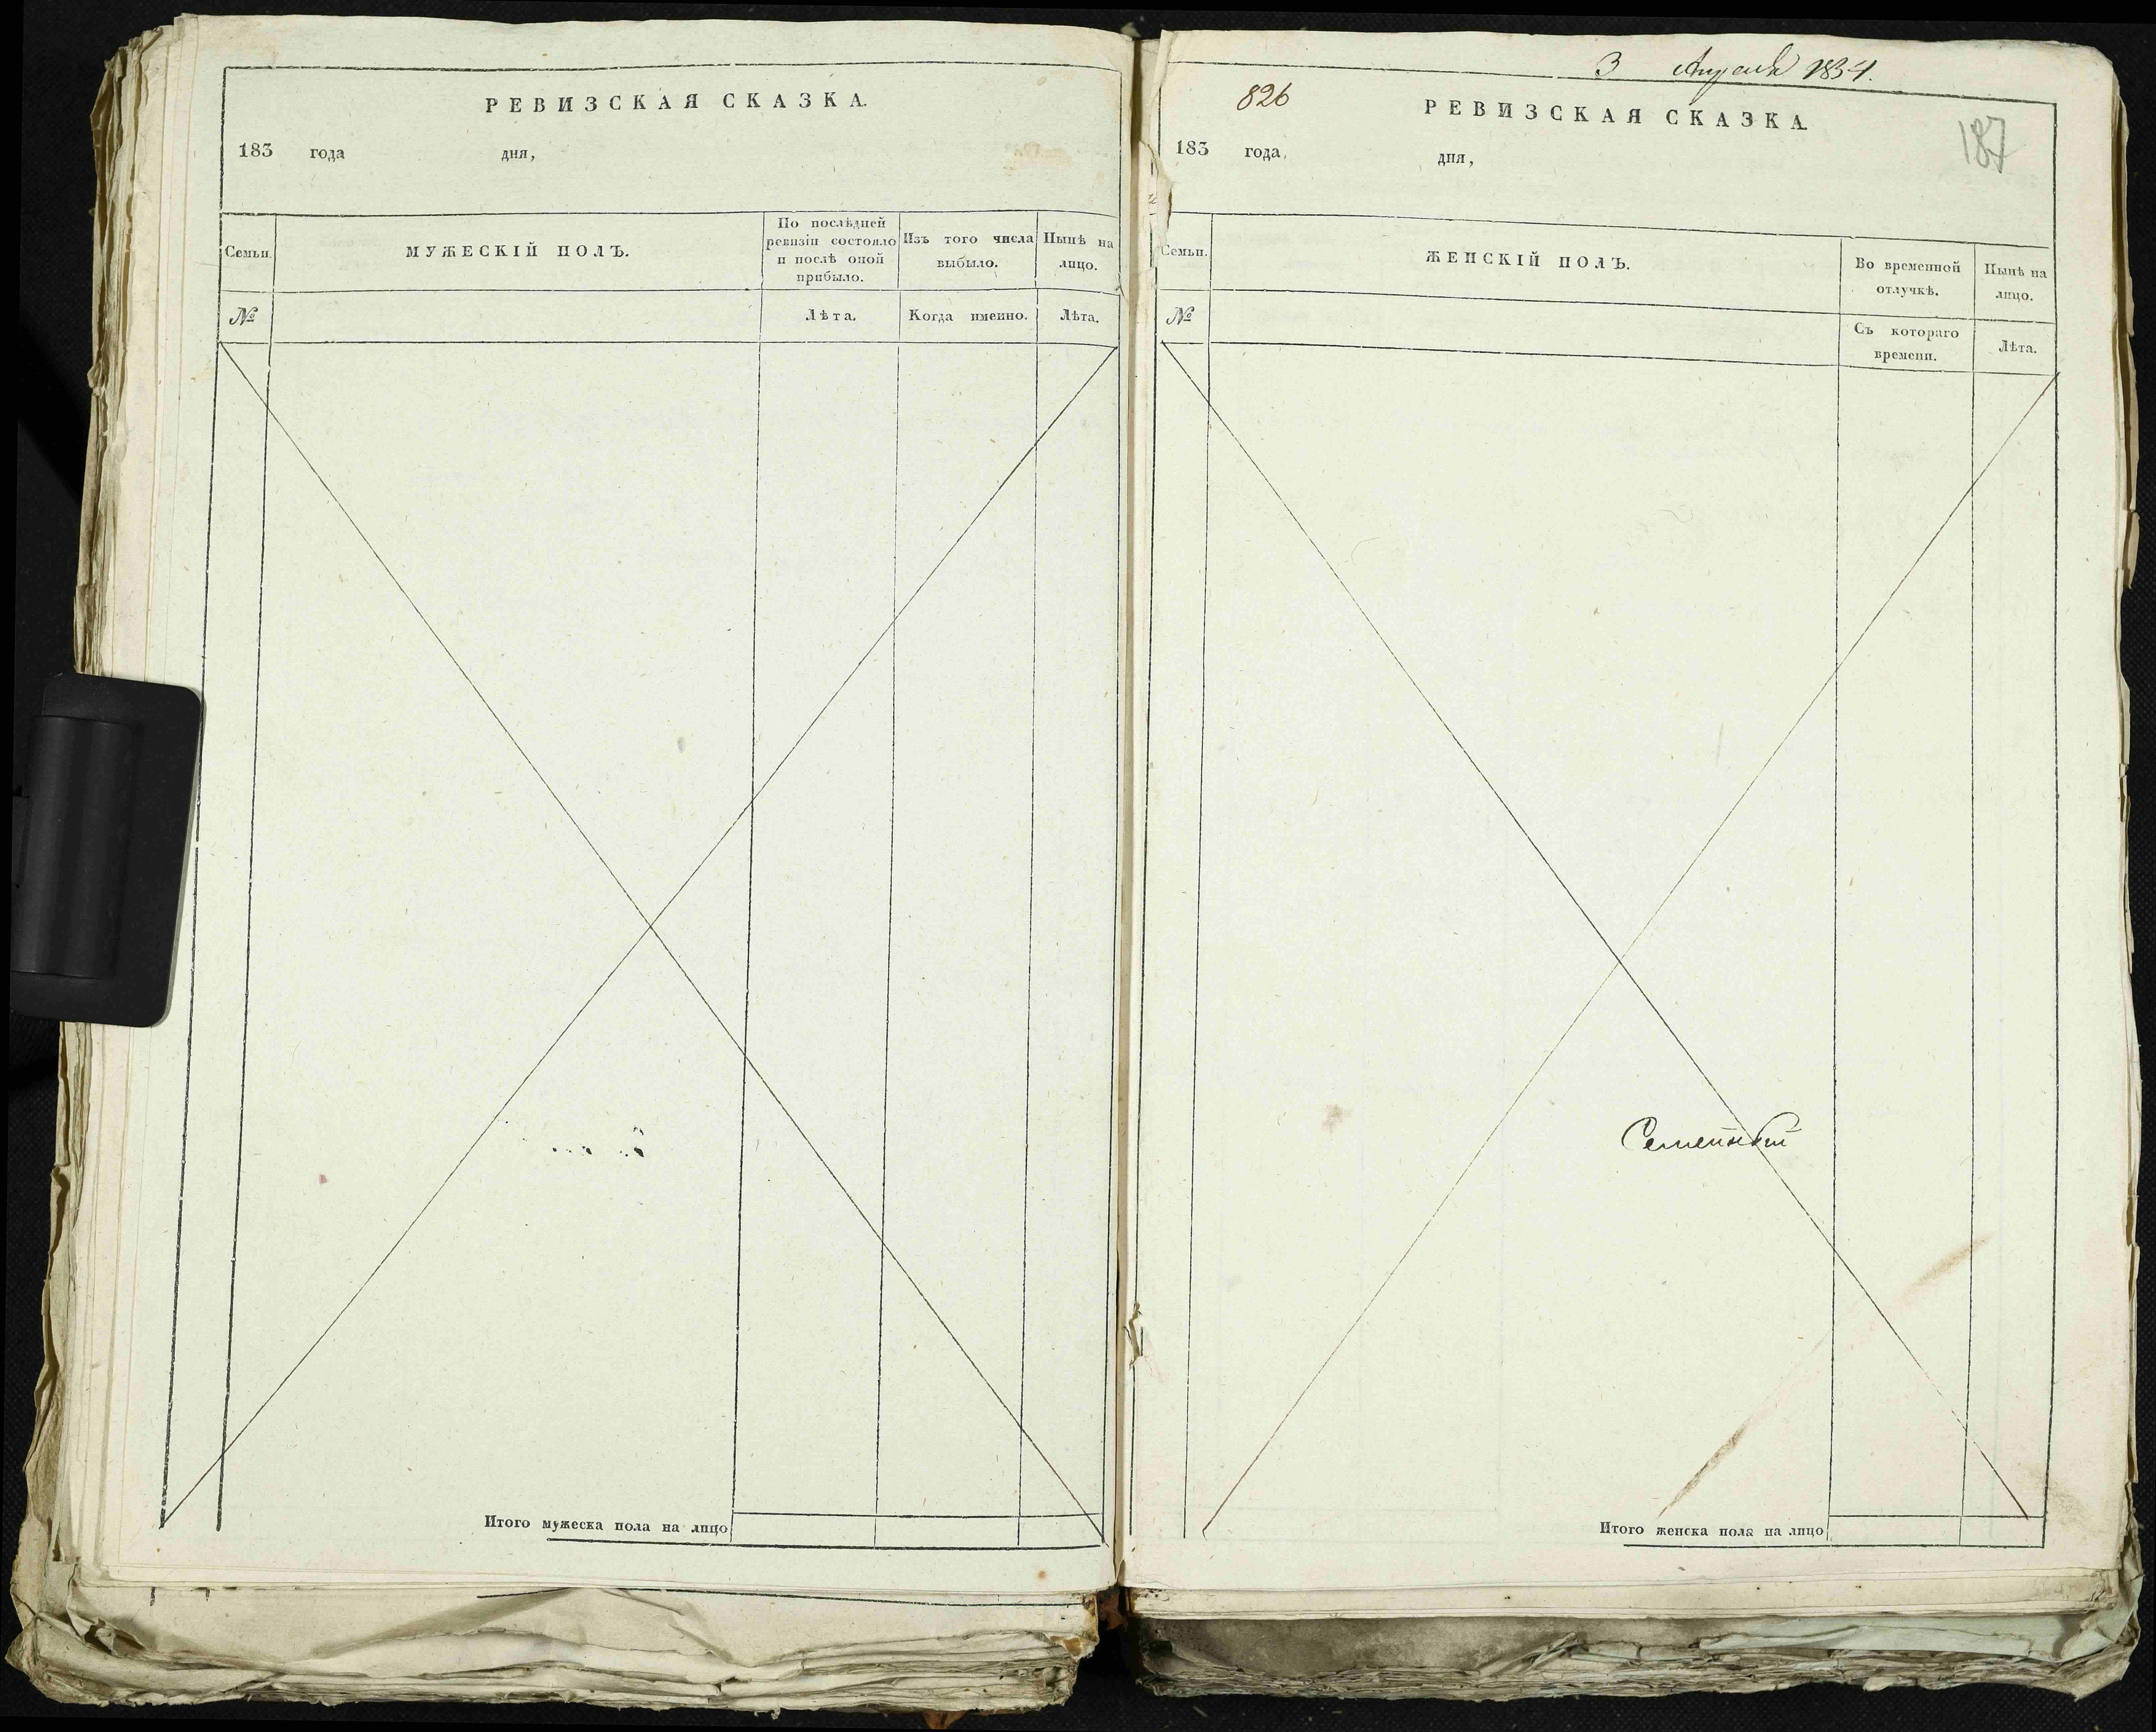 РЕВИЗСКАЯ СКАЗКА.
183 года дня,
Семьи.
МУЖЕСКІЙ ПОЛЪ.
По послѣдней ревизіи состояло и послѣ оной прибыло.
Изъ того числа выбыло.
Нынѣ на лицо.
№
Лѣта.
Когда именно.
Лѣта.
Итого мужеска пола на лицо
3 Апреля 1834.
826
РЕВИЗСКАЯ СКАЗКА
187
183 года, дня,
Семьи.
ЖЕНСКІЙ ПОЛЪ.
Во временной отлучкѣ.
Нынѣ на лицо.
№
Съ котораго времени.
Лѣта.
Итого женска пола на лицо